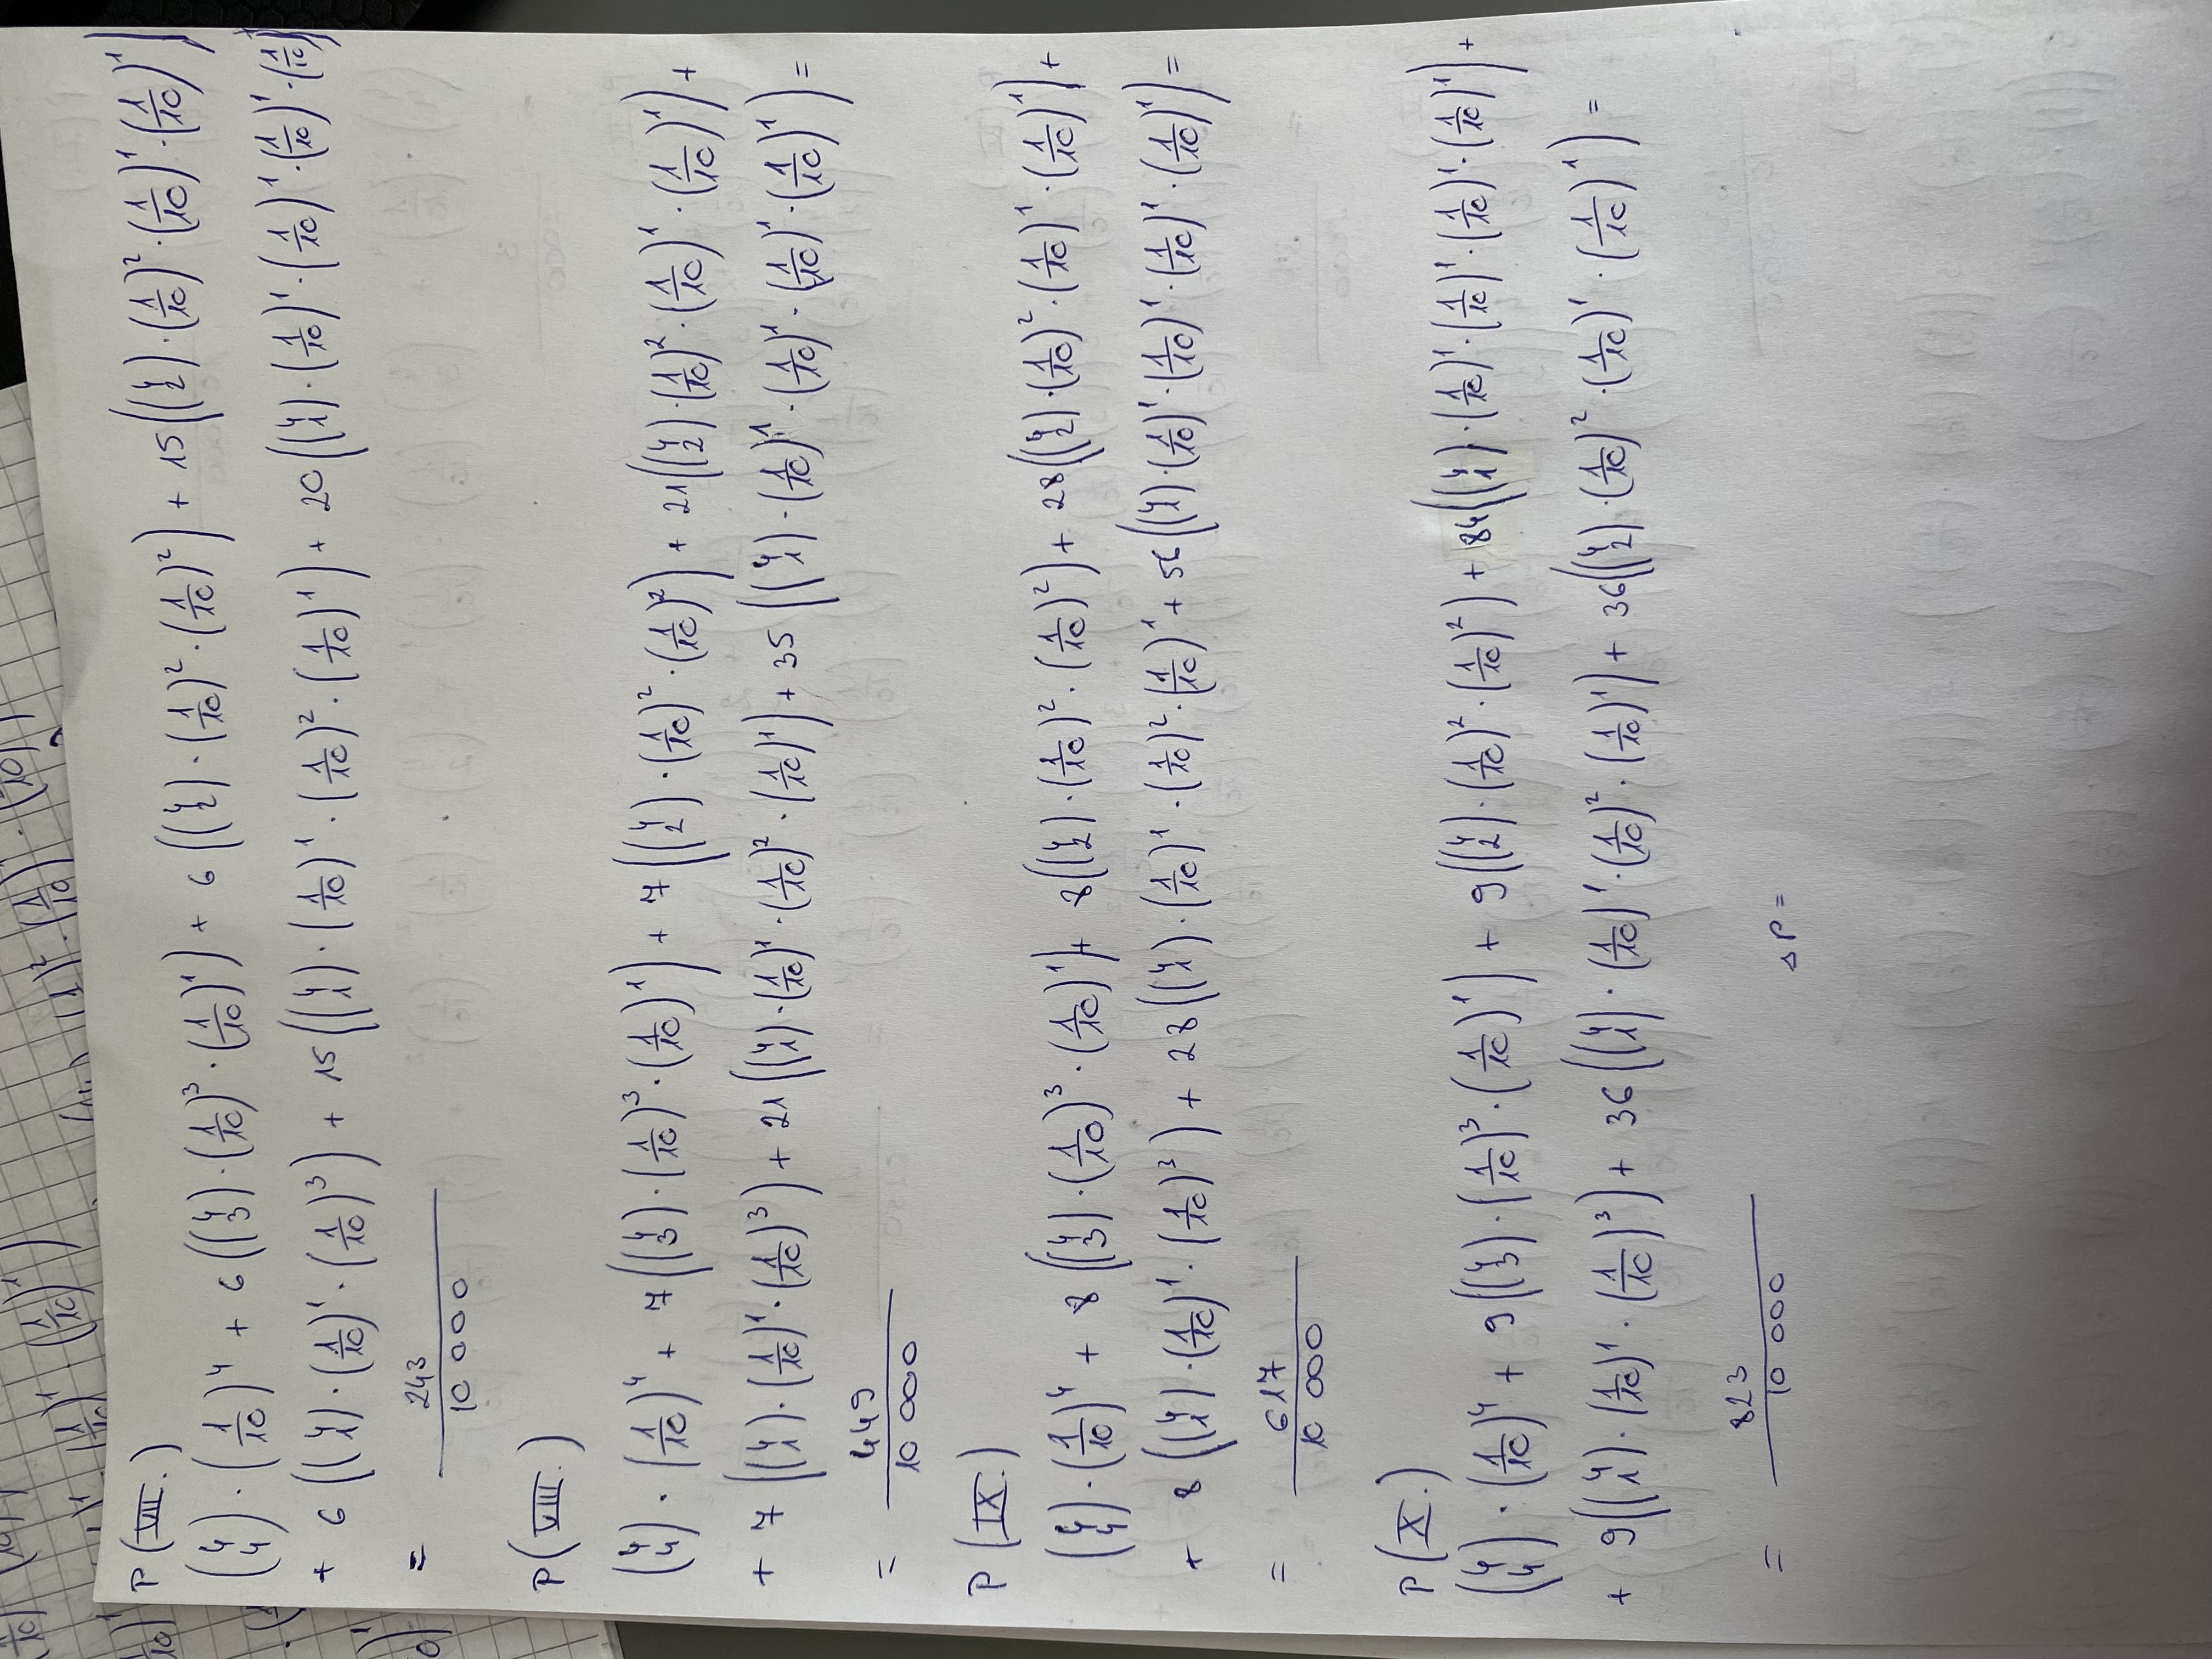 P(VII.)
(4 4) · (1/10)⁴ + 6((4 3) · (1/10)³ · (1/10)¹) + 6((4 2) · (1/10)² · (1/10)²) + 15((4 2) · (1/10)² · (1/10)¹ · (1/10)¹)
+ 6((4 1) · (1/10)¹ · (1/10)³) + 15((4 1) · (1/10)¹ · (1/10)² · (1/10)¹) + 20((4 1) · (1/10)¹ · (1/10)¹ · (1/10)¹ · (1/10)
= 243/10 000
P(VIII.)
(4 4) · (1/10)⁴ + 7((4 3) · (1/10)³ · (1/10)¹) + 7((4 2) · (1/10)² · (1/10)²) + 21((4 2) · (1/10)² · (1/10)¹ · (1/10)¹) +
+ 7((4 1) · (1/10)¹ · (1/10)³) + 21((4 1) · (1/10)¹ · (1/10)² · (1/10)¹) + 35((4 1) · (1/10)¹ · (1/10)¹ · (1/10)¹ · (1/10)¹) =
= 449/10 000
P(IX.)
(4 4) · (1/10)⁴ + 8((4 3) · (1/10)³ · (1/10)¹) + 8((4 2) · (1/10)² · (1/10)²) + 28((4 2) · (1/10)² · (1/10)¹ · (1/10)¹) +
+ 8((4 1) · (1/10)¹ · (1/10)³) + 28((4 1) · (1/10)¹ · (1/10)² · (1/10)¹ + 56((4 1) · (1/10)¹ · (1/10)¹ · (1/10)¹ · (1/10)¹) =
= 617/10 000
P(X.)
(4 4) · (1/10)⁴ + 9((4 3) · (1/10)³ · (1/10)¹) + 9((4 2) · (1/10)² · (1/10)²) + 84((4 1) · (1/10)¹ · (1/10)¹ · (1/10)¹ · (1/10)¹) +
+ 9((4 1) · (1/10)¹ · (1/10)³) + 36((4 1) · (1/10)¹ · (1/10)² · (1/10)¹) + 36((4 2) · (1/10)² · (1/10)¹ · (1/10)¹) =
= 823/10 000
△P =